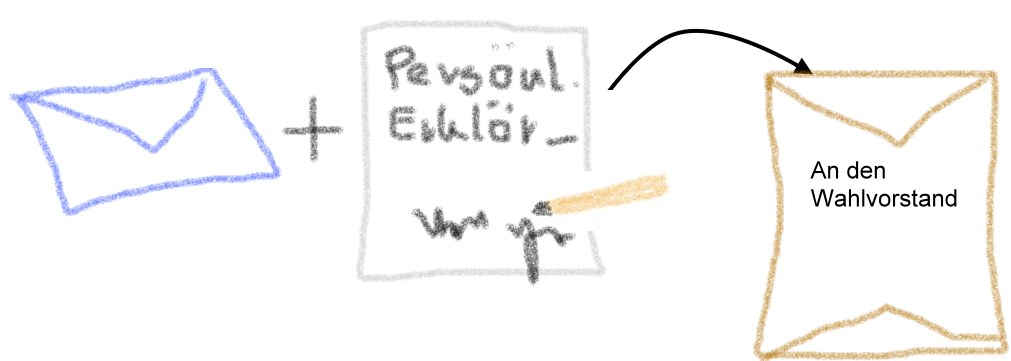 Persönl.
Erklär_
An den
Wahlvorstand